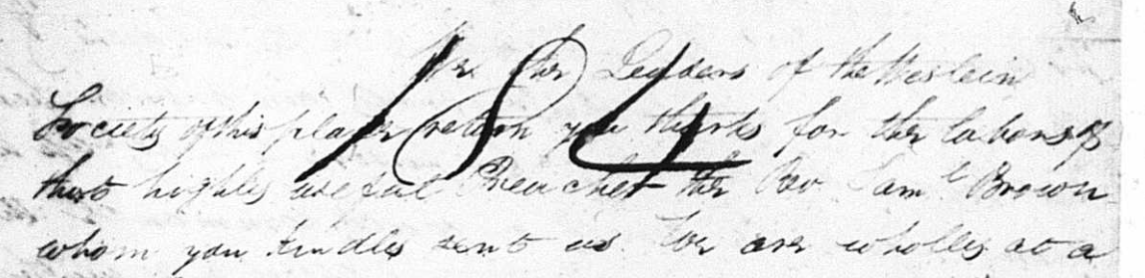 We the Leaders of the Weslein
Society of this place return you thanks for the labors of
that highly useful Preacher the Rev Saml Brown
whom you kindly sent us. We are wholly at a
184